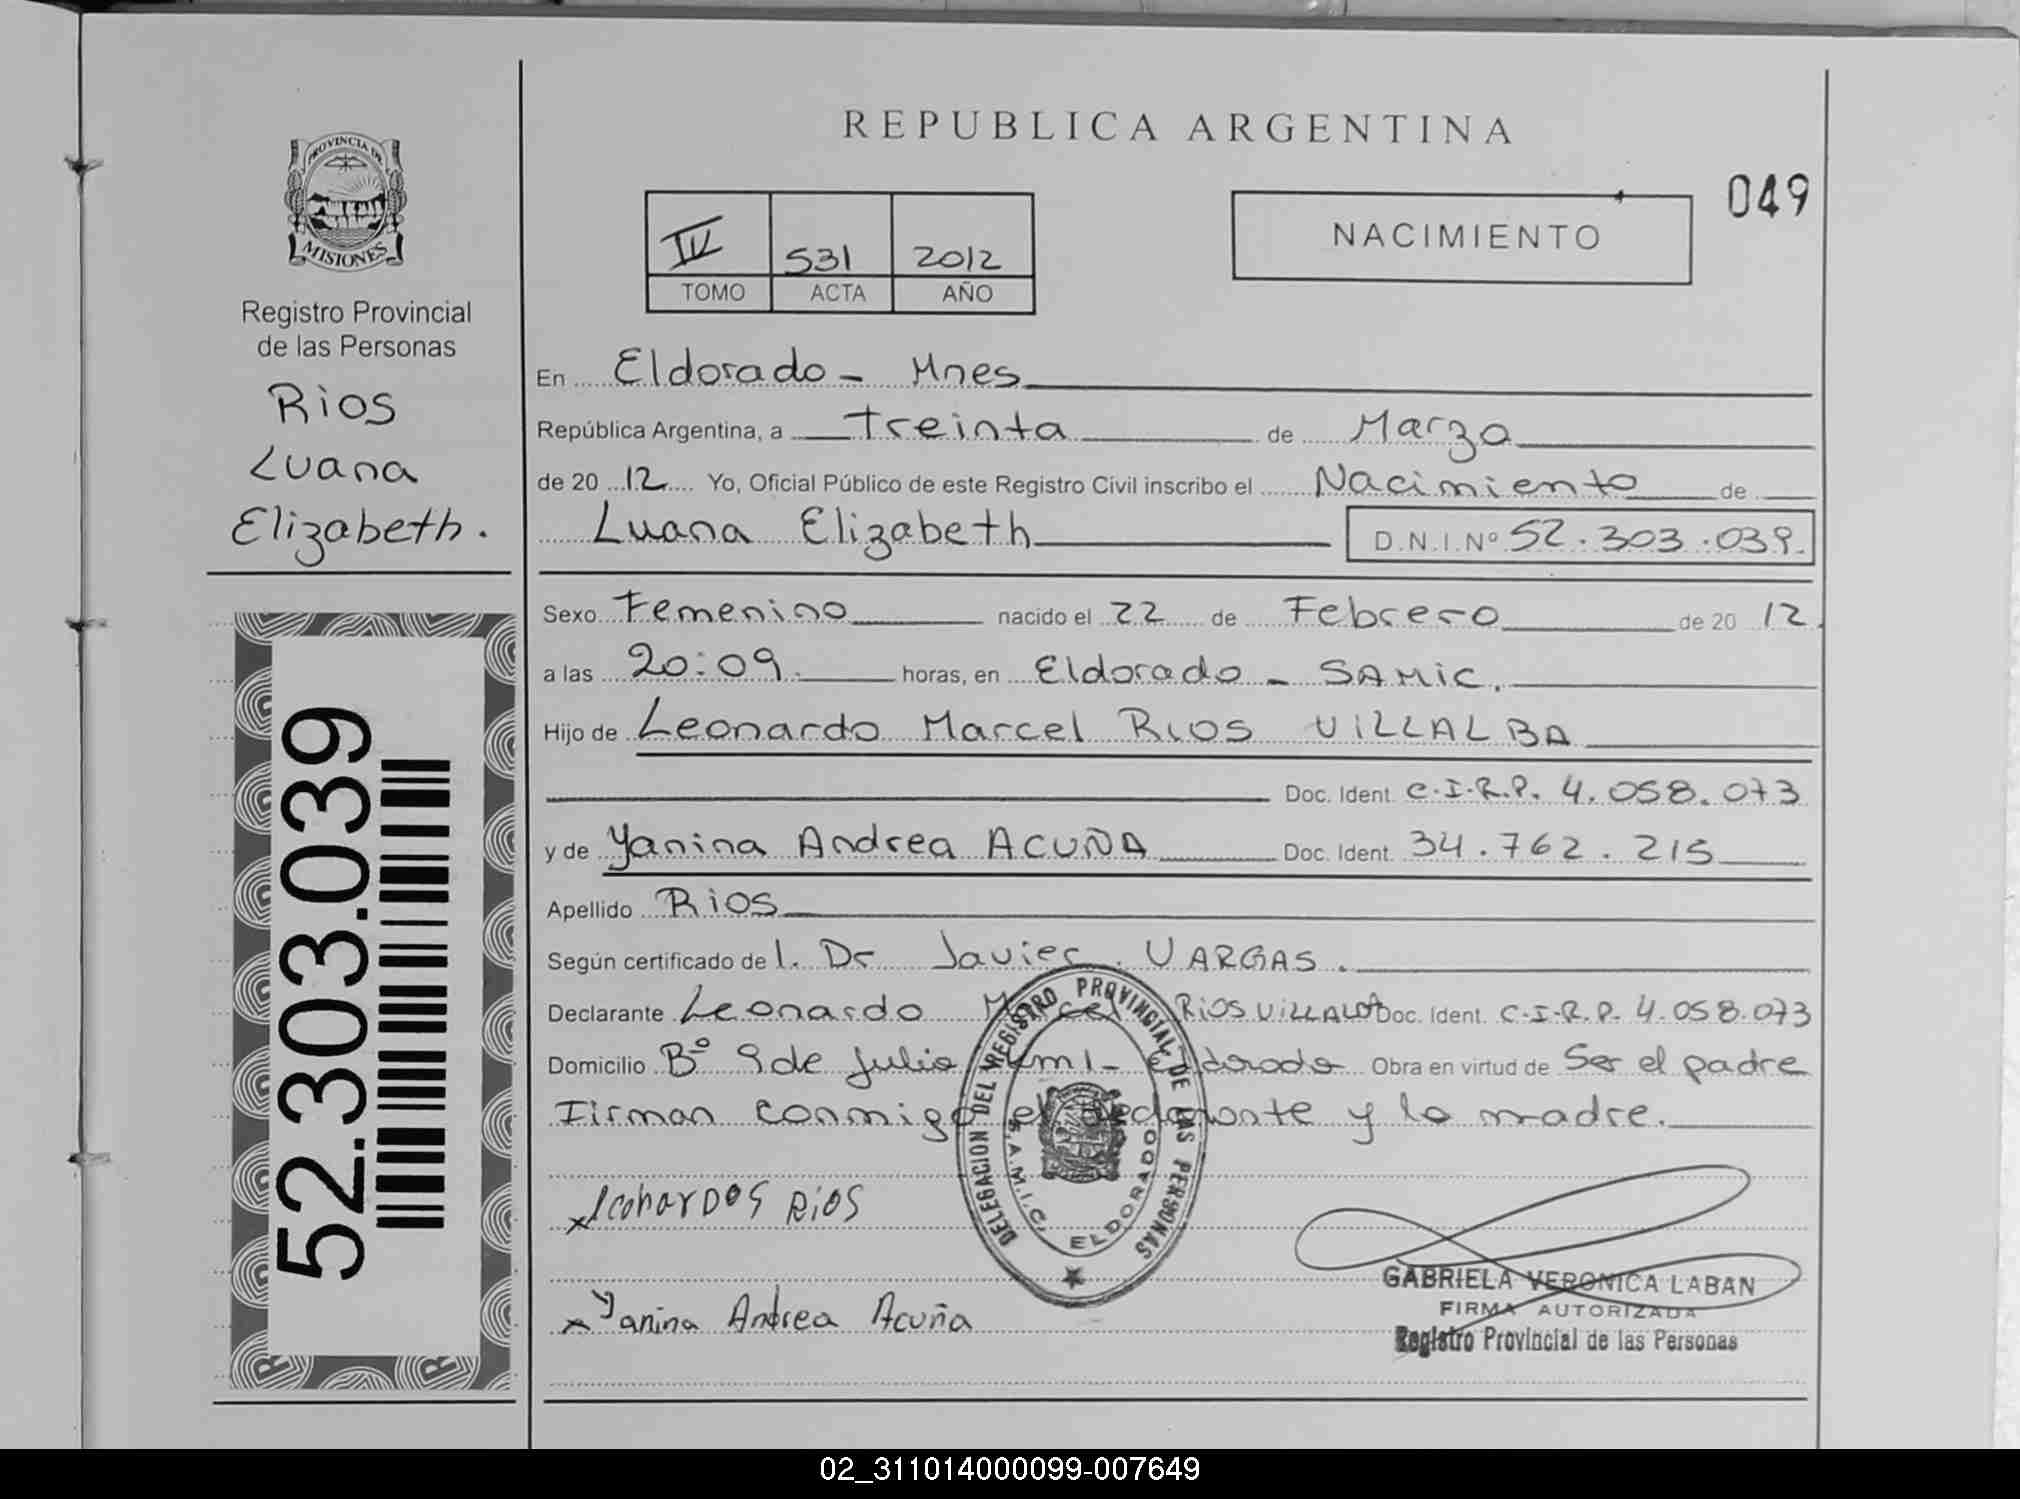 REPUBLICA ARGENTINA
049
PROVINCIA DE
MISIONES
Registro Provincial
de las Personas
Rios
Luana
Elizabeth.
52.303.039
IV 531 2012
TOMO ACTA AÑO
NACIMIENTO
En Eldorado - Mnes
República Argentina, a treinta de Marzo
de 20 12 Yo, Oficial Público de este Registro Civil inscribo el Nacimiento de
Luana Elizabeth D.N.I.Nº 52.303.039.
Sexo Femenino nacido el 22 de Febrero de 20 12.
a las 20:09. horas, en Eldorado - SAMIC.
Hijo de Leonardo Marcel RIOS VILLALBA
Doc. Ident. C.I.R.P. 4.058.073
y de Yanina Andrea ACUÑA Doc. Ident. 34.762.215
Apellido RIOS
Según certificado de l. Dr Javier VARGAS.
Declarante Leonardo Marcel RIOS VILLALBA Doc. Ident. C.I.R.P. 4.058.073
Domicilio Bº 9 de Julio km1- eldorado Obra en virtud de Ser el padre
Firman conmigo el declarante y la madre.
DELEGACION DEL REGISTRO PROVINCIAL DE LAS PERSONAS
S.A.M.I.C. ELDORADO
x LeonarDos Rios
x Yanina Andrea Acuña
GABRIELA VERONICA LABAN
FIRMA AUTORIZADA
Registro Provincial de las Personas
02_311014000099-007649